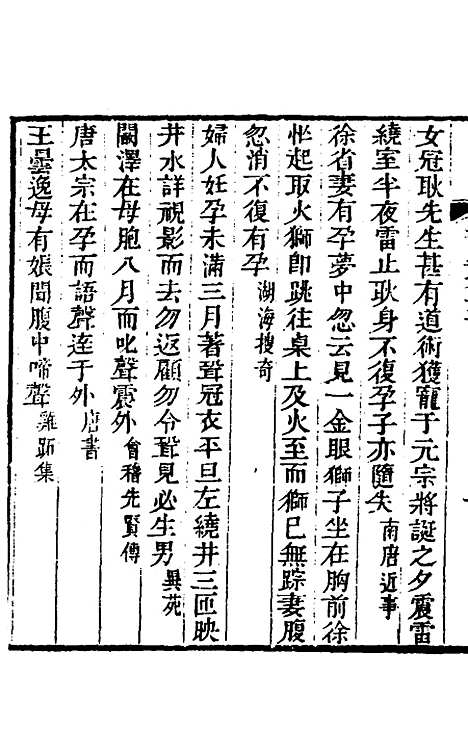 女冠耿先生甚有道術獲寵于元宗將誕之夕震雷
繞室半夜雷止耿身不復孕子亦隨失 南唐近事
徐省妻有孕夢中忽云見一金眼獅子坐在胸前徐
恠起取火獅卽跳往桌上及火至而獅已無踪妻腹
忽消不復有孕 湖海搜奇
婦人妊孕未滿三月著壻冠衣平旦左繞井三匝映
井水詳視影而去勿返顧勿令壻見必生男 異苑
闞澤在母胞八月而叱聲震外 會稽先賢傳
唐太宗在孕而語聲逹于外 唐書
王曇逸母有娠聞腹中啼聲 雞跖集